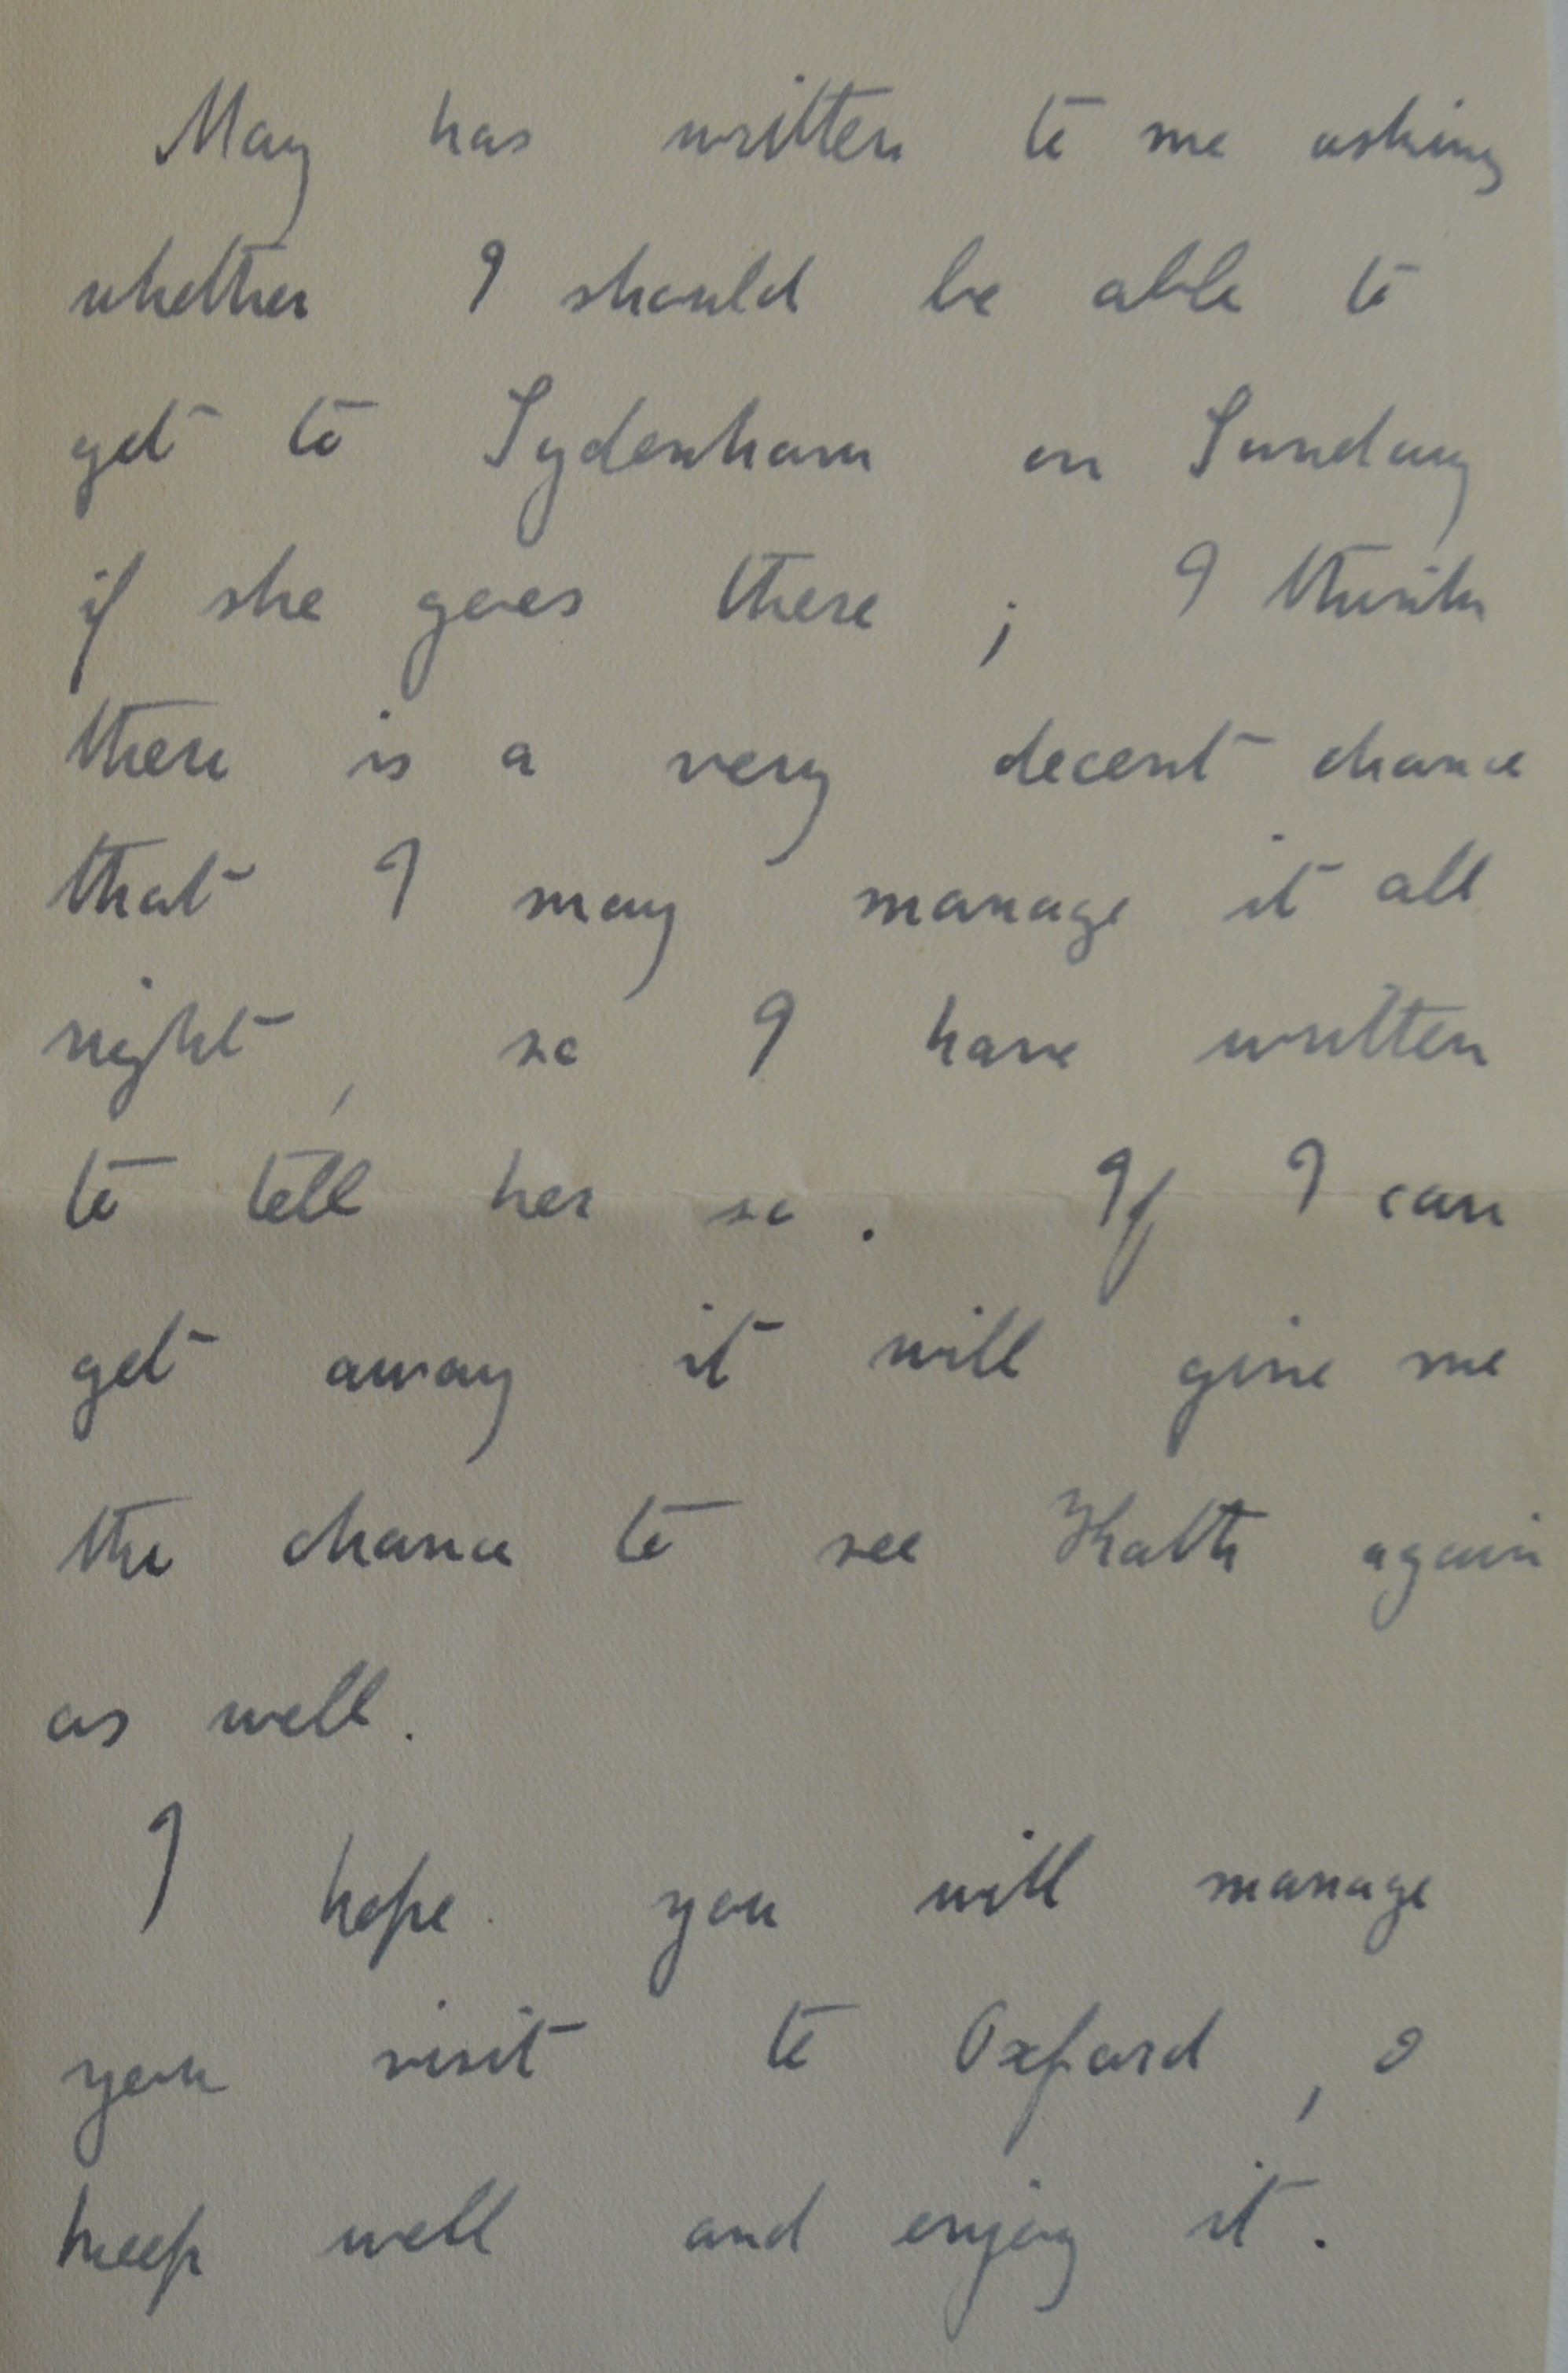 May has written to me asking
whether I should be able to
get to Sydenham on Sunday
if she goes there ; I think
there is a very decent chance
that I may manage it all
right, so I have written
to tell her so. If I can
get away it will give me
the chance to see Kath again
as well.
I hope you will manage
your visit to Oxford,
keep well and enjoy it.